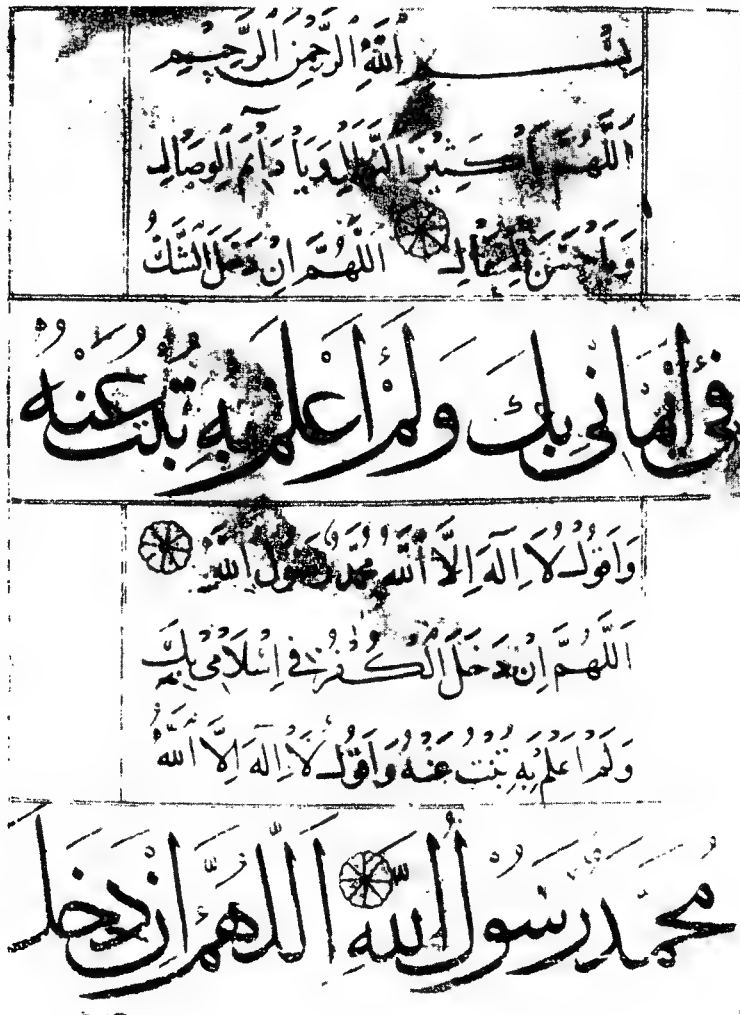 بِسْمِ اللهِ الرَّحْمٰنِ الرَّحِيمِ
اَللّٰهُمَّ يَا كَثِيْرَ النَّوَالِ وَيَا دَآئِمَ الْوِصَالِ
وَيَا حَسَنَ الْفِعَالِ اَللّٰهُمَّ اِنْ دَخَلَ الشَّكُّ
فِيْ اِيْمَانِيْ بِكَ وَلَمْ اَعْلَمْ بِهِ تُبْتُ عَنْهُ
وَاَقُوْلُ لَا اِلٰهَ اِلَّا اللهُ مُحَمَّدٌ رَسُوْلُ اللهِ
اَللّٰهُمَّ اِنْ دَخَلَ الْكُفْرُ فِيْ اِسْلَامِيْ بِكَ
وَلَمْ اَعْلَمْ بِهِ تُبْتُ عَنْهُ وَاَقُوْلُ لَا اِلٰهَ اِلَّا اللهُ
مُحَمَّدٌ رَسُوْلُ اللهِ اَللّٰهُمَّ اِنْ دَخَلَ